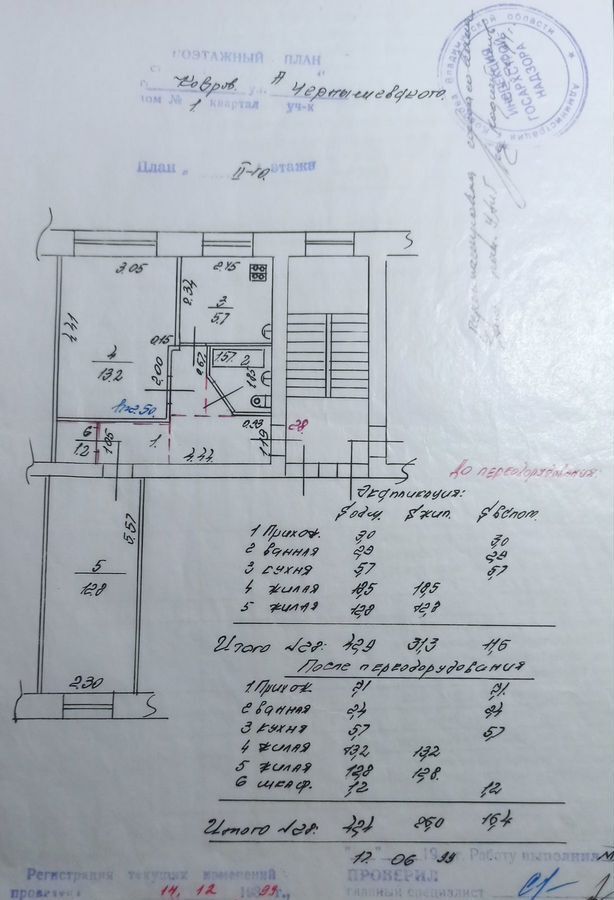 ПОЭТАЖНЫЙ ПЛАН
Ковров. ул. Чернышевского.
дом № 1. квартал уч-к
План " II-го. этажа
Администрация
Владимирской области
ИНСПЕКЦИЯ
ГОСАРХСТРОЙ
НАДЗОРА
3.05
2.45
4.41
2.34
3
5.7
0.15
4
13.2
2.00
0.67
1.57
2
1.85
h=2.50
6
1.2
1.05
1.
4.44
0.93
1.19
28.
5.57
5
12.8
2.30
До переоборудования:
Экспликация:
Sобщ. Sжил. Sвспом.
1 Прихож. 3,0 3,0
2 ванная 2,9 2,9
3 кухня 5,7 5,7
4 жилая 18,5 18,5
5 жилая 12,8 12,8
Итого №28: 42,9 31,3 11,6
После переоборудования
1 Прихож.
2 ванная 2,4 2,4
3 кухня 5,7 5,7
4 жилая 13,2 13,2
5 жилая 12,8 12,8.
6 шкаф. 1,2 1,2
Итого №28: 42,4 26,0 16,4
17. 06 99
Работу выполнил
Регистрация текущих изменений
проведена 14. 12 1999 г.,
ПРОВЕРИЛ
главный специалист